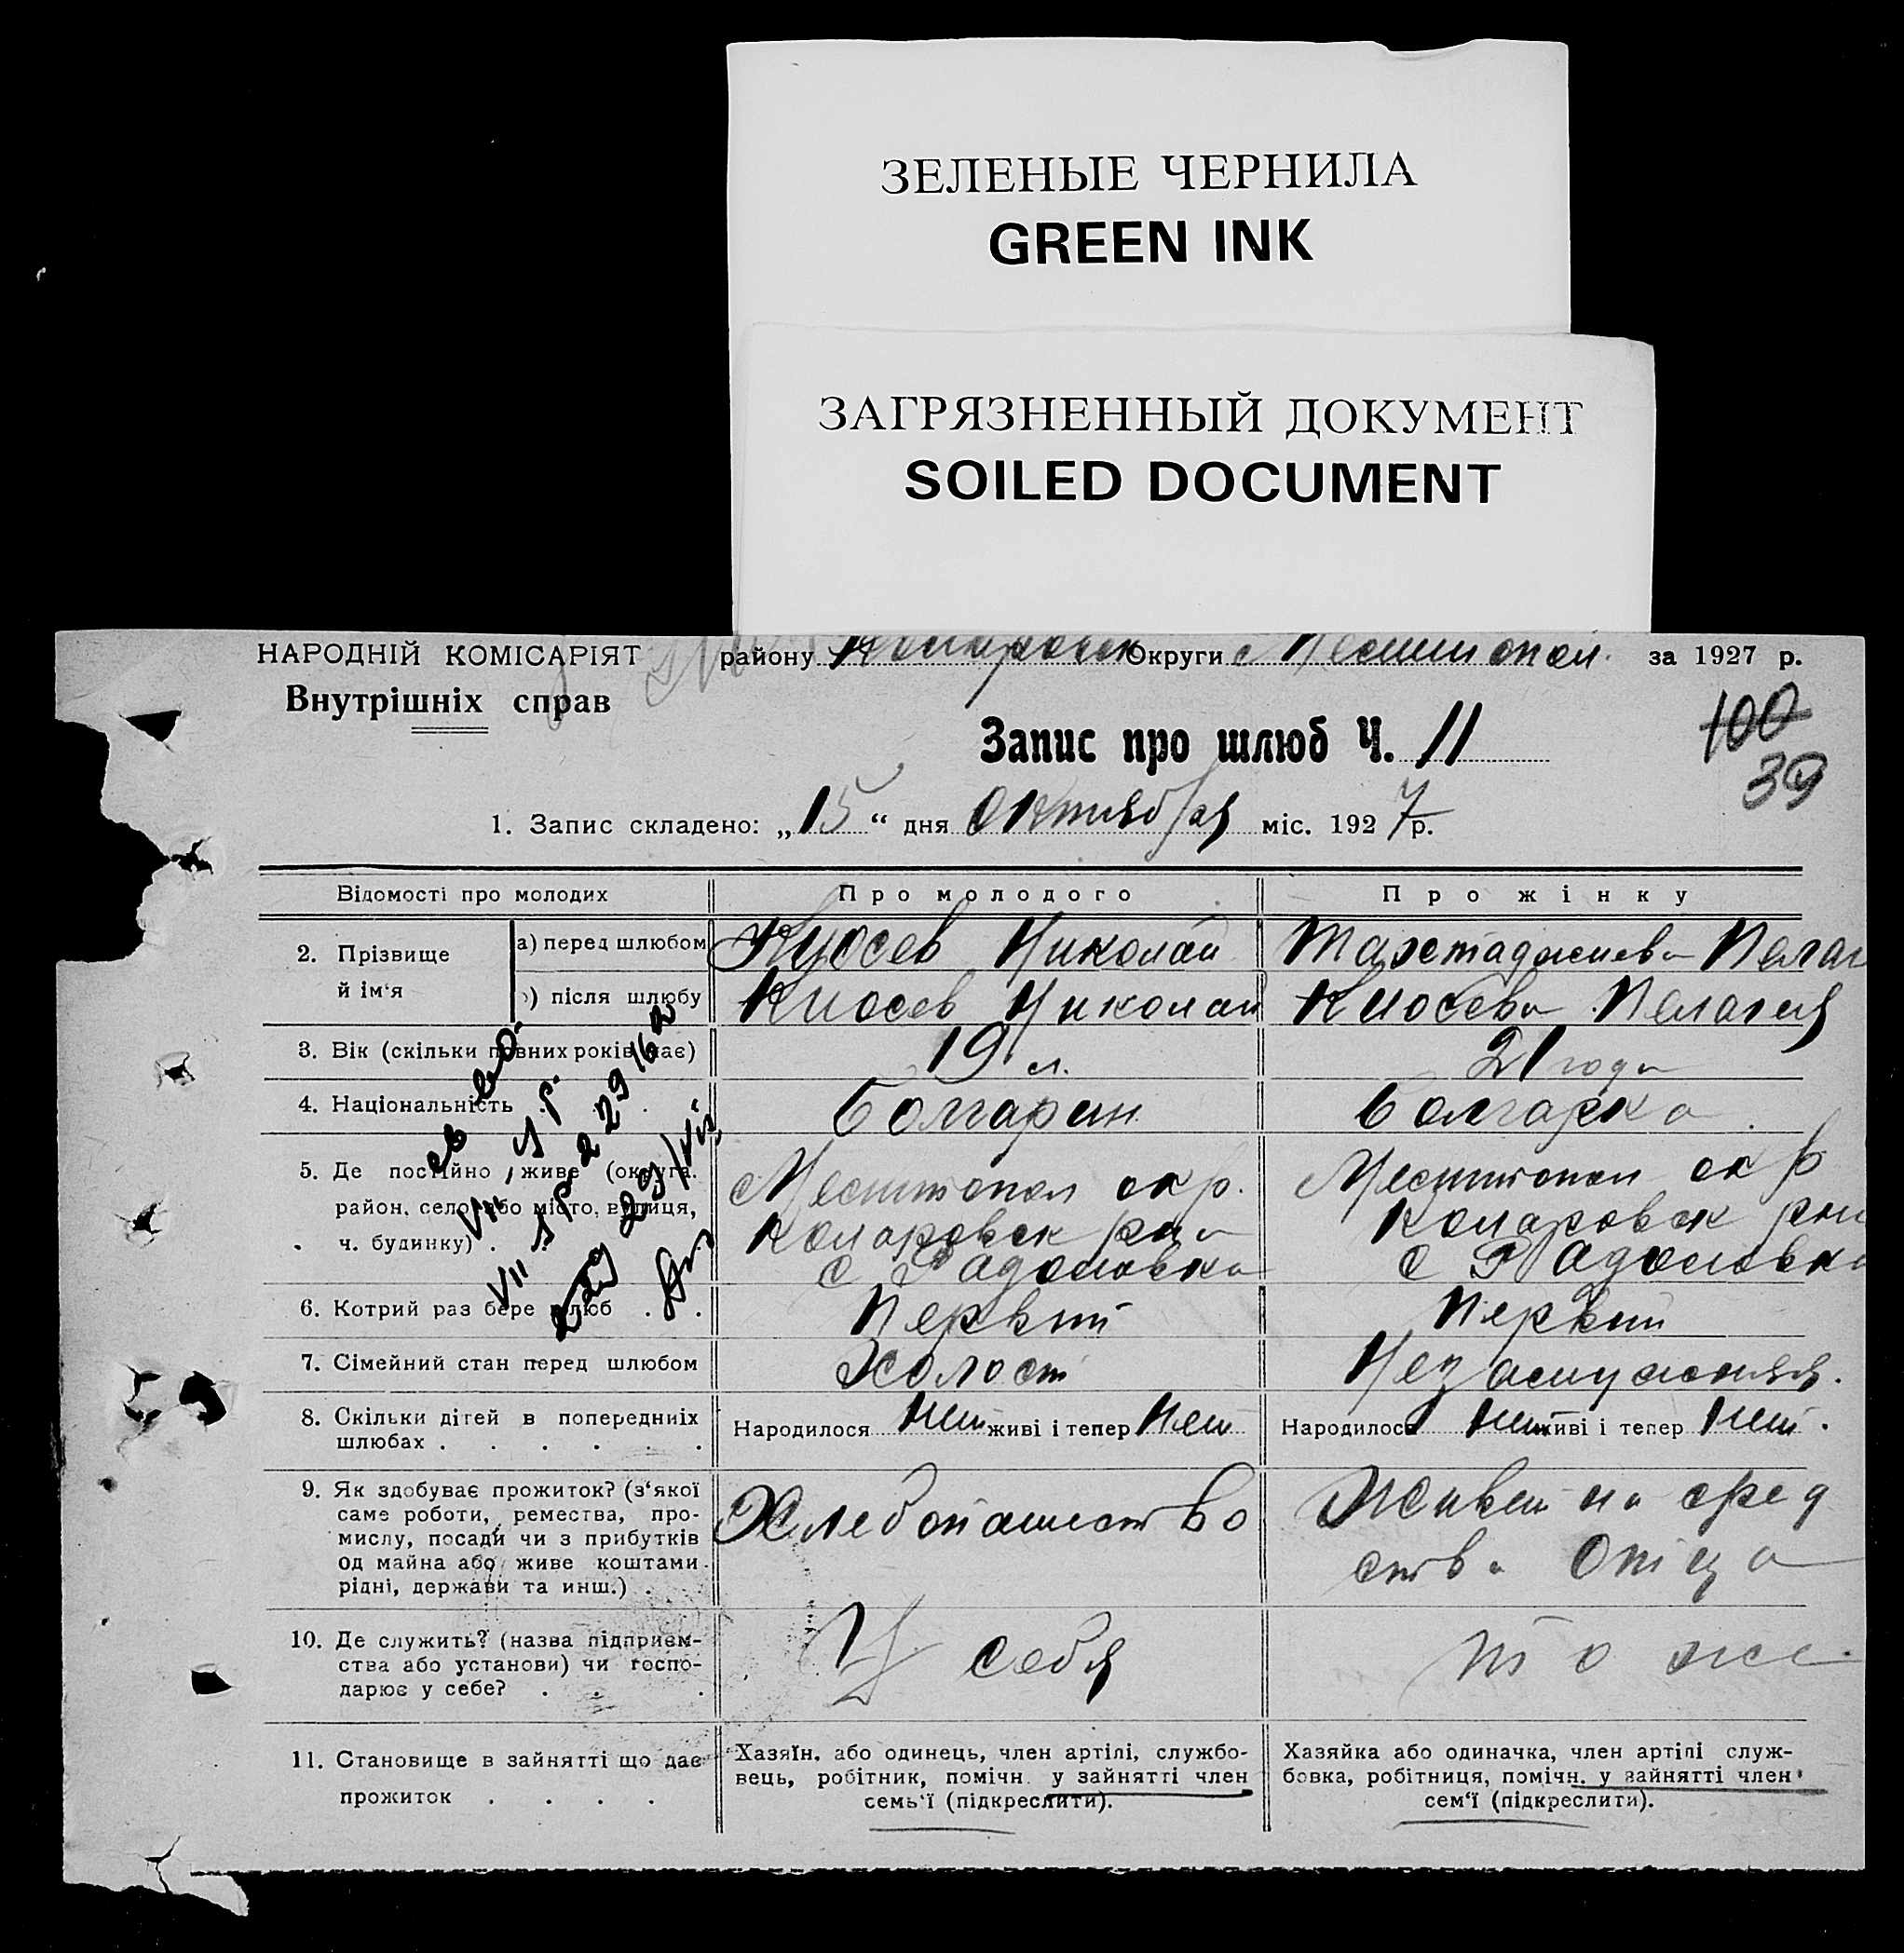 ЗЕЛЕНЫЕ ЧЕРНИЛА
GREEN INK
ЗАГРЯЗНЕННЫЙ ДОКУМЕНТ
SOILED DOCUMENT
НАРОДНІЙ КОМІСАРІЯТ
Внутрішніх справ
району Коларовск Округи Мелитопол. за 1927 р.
Запис про шлюб Ч. 11
100
39
1. Запис складено: „15“ дня Октября міс. 1927 р.
Відомості про молодих Про молодого Про жінку
2. Прізвище й ім‘я
а) перед шлюбом Киосев Николай
б) після шлюбу Киосев Николай Киосева Пелагея
3. Вік (скільки повних років має) 19 л. 21 года
4. Національність . . . Болгарин Болгарка
5. Де постійно живе (округа. район, село або місто, вулиця, ч. будинку) .
Мелитопол окр.
Коларовск р-на
с Радоловка
Мелитопол окр
Коларовск рна
с Радоловка
6. Котрий раз бере шлюб . . Первый Первый
7. Сімейний стан перед шлюбом Холост Незамужняя.
8. Скільки дітей в попередниіх
шлюбах . . . . . .
Народилося Нет живі і тепер Нет Народилося Нет живі і тепер Нет.
9. Як здобуває прожиток? (з‘якої
саме роботи, ремества, про-
мислу, посади чи з прибутків
од майна або живе коштами
рідні, держави та инш.) .
Хлебопашество
Живет на сред
ства Отца
10. Де служить? (назва підприєм-
ства або установи) чи госпо-
дарює у себе? . . .
У себя
то же
11. Становище в зайнятті що дає
прожиток . . . .
Хазяїн, або одинець, член артілі, службо-
вець, робітник, помічн. у зайнятті член
семь‘ї (підкреслити).
Хазяйка або одиначка, член артілі служ-
бовка, робітниця, помічн. у зайнятті член
сем‘ї (підкреслити).